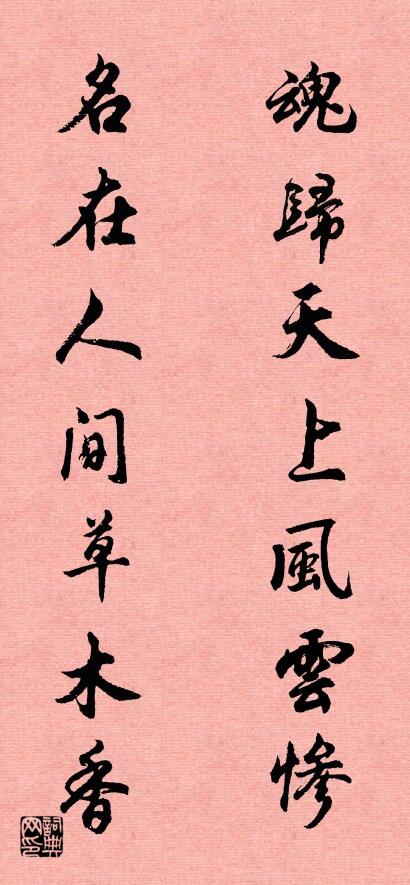 魂歸天上風雲慘
名在人間草木香
詞典
网印